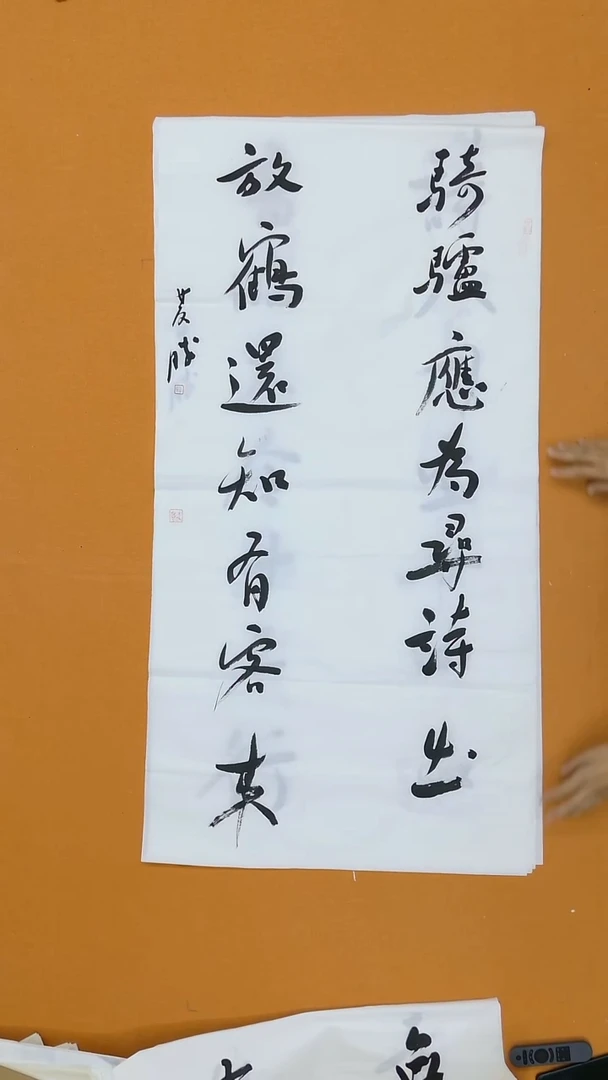 騎驢應為尋詩出
放鶴還知有客來